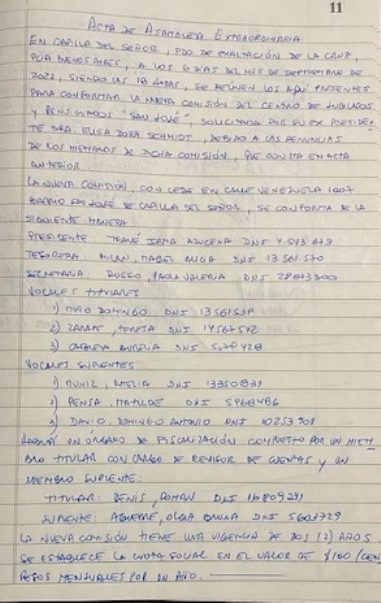 11
ACTA DE ASAMBLEA EXTRAORDINARIA
EN CAPILLA DEL SEÑOR, PDO DE EXALTACIÓN DE LA CRUZ,
PCIA BUENOS AIRES, A LOS 6 DIAS DEL MES DE SEPTIEMBRE DE
2021, SIENDO LAS 18 HORAS, SE REÚNEN LOS AQUÍ PRESENTES
PARA CONFORMAR LA NUEVA COMISIÓN DEL CENTRO DE JUBILADOS
Y PENSIONADOS "SAN JOSÉ", SOLICITADA POR SU EX PRESIDEN
TE SRA ELISA DORA SCHMIDT, DEBIDO A LAS RENUNCIAS
DE LOS MIEMBROS DE DICHA COMISIÓN, QUE CONSTA EN ACTA
ANTERIOR
LA NUEVA COMISIÓN, CON SEDE EN CALLE VENEZUELA 1007
BARRIO SAN JOSÉ DE CAPILLA DEL SEÑOR, SE CONFORMA DE LA
SIGUIENTE MANERA
PRESIDENTE: IRMA AZUCENA DNI
TESORERA: MILAN, MABEL ALICIA DNI 13561570
SECRETARIA: BOSSO, PAOLA VALERIA DNI 28073300
VOCALES TITULARES
1) MIRO DOMINGO DNI
2) ZARATE, TERESA DNI 14567542
3) AURELIA DNI
VOCALES SUPLENTES
1) MUNIZ, AMELIA DNI 13350831
2) PENSA, MATILDE DNI 5968486
3) DAVIO, DOMINGO ANTONIO DNI 10253901
HABRÁ UN ÓRGANO DE FISCALIZACIÓN COMPUESTO POR UN MIEM
BRO TITULAR CON CARGO DE REVISOR DE CUENTAS Y UN
MIEMBRO SUPLENTE:
TITULAR: DENIS, ROMAN DNI 14809231
SUPLENTE: AGUERRE, OLGA DNI 5603729
LA NUEVA COMISIÓN TIENE UNA VIGENCIA DE DOS (2) AÑOS
SE ESTABLECE LA CUOTA SOCIAL EN EL VALOR DE $100 (CIEN
PESOS MENSUALES POR UN AÑO.